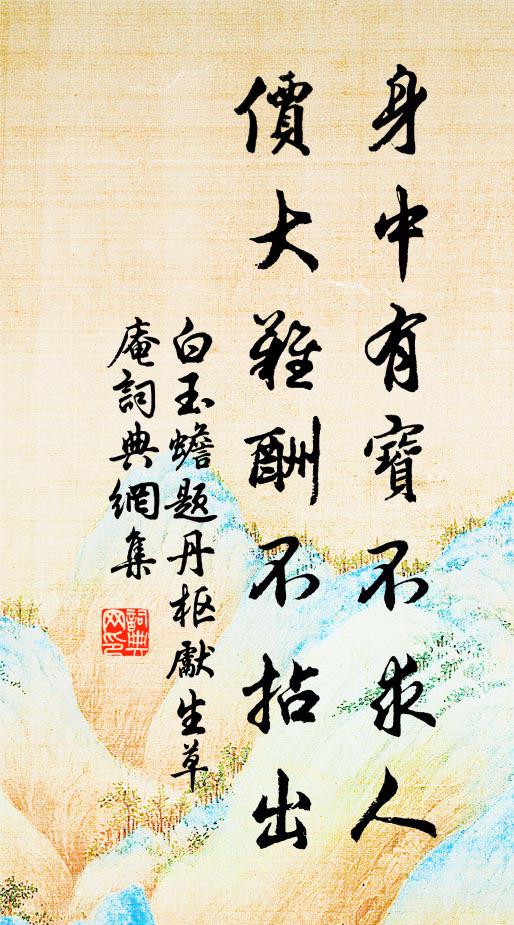 身中有寶不求人
價大難酬不拈出
白玉蟾題丹枢獻生草
庵詞典網集
詞典網印